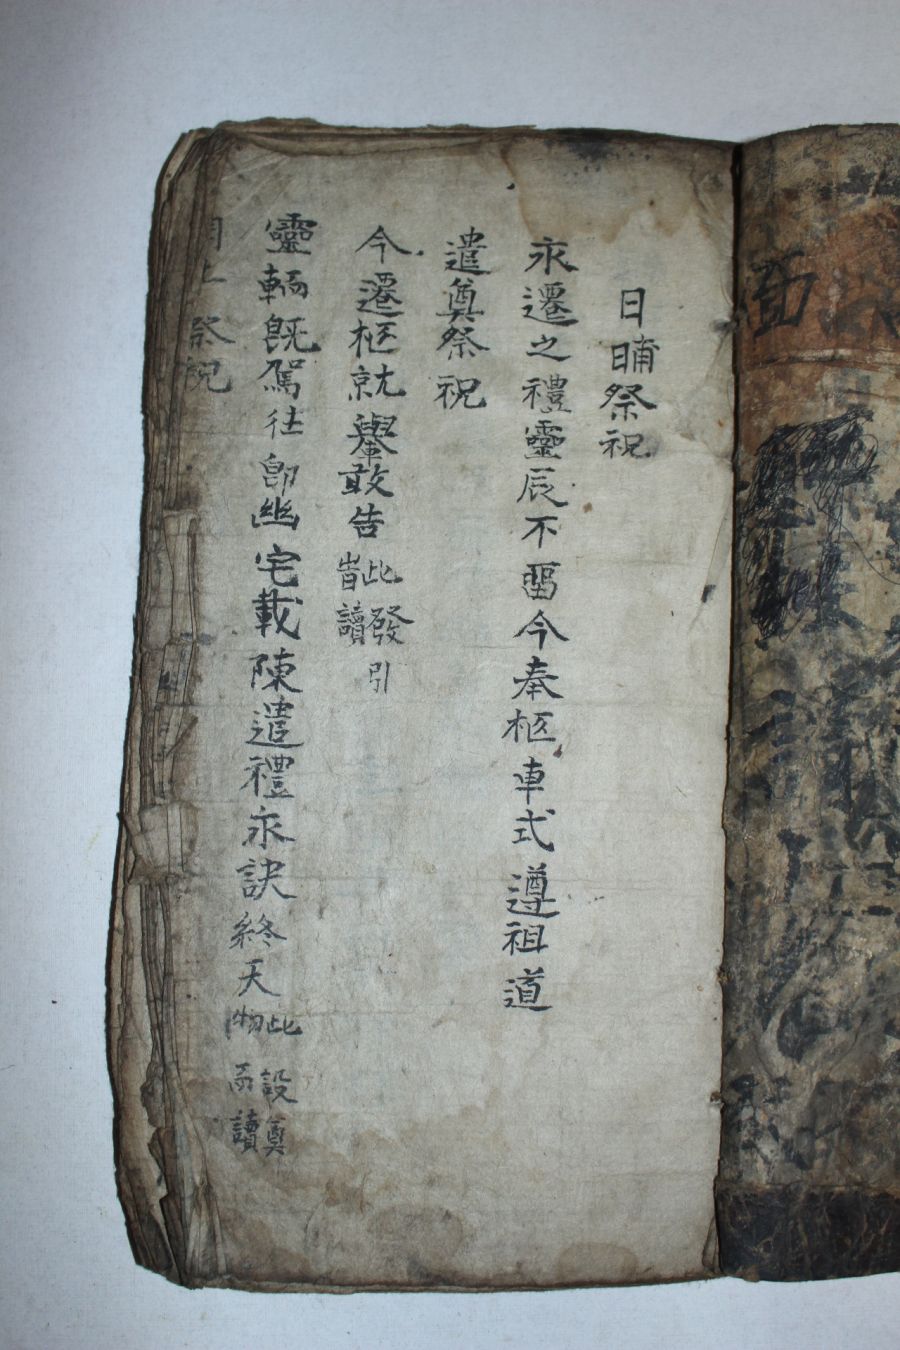 日晡祭祝
永遷之禮靈辰不畱今奉柩車式遵祖道
遣奠祭祝
今遷柩就轝敢告
此發引
昔讀
靈輀旣駕往卽幽宅載陳遣禮永訣終天
此設奠
物而讀
祭祝